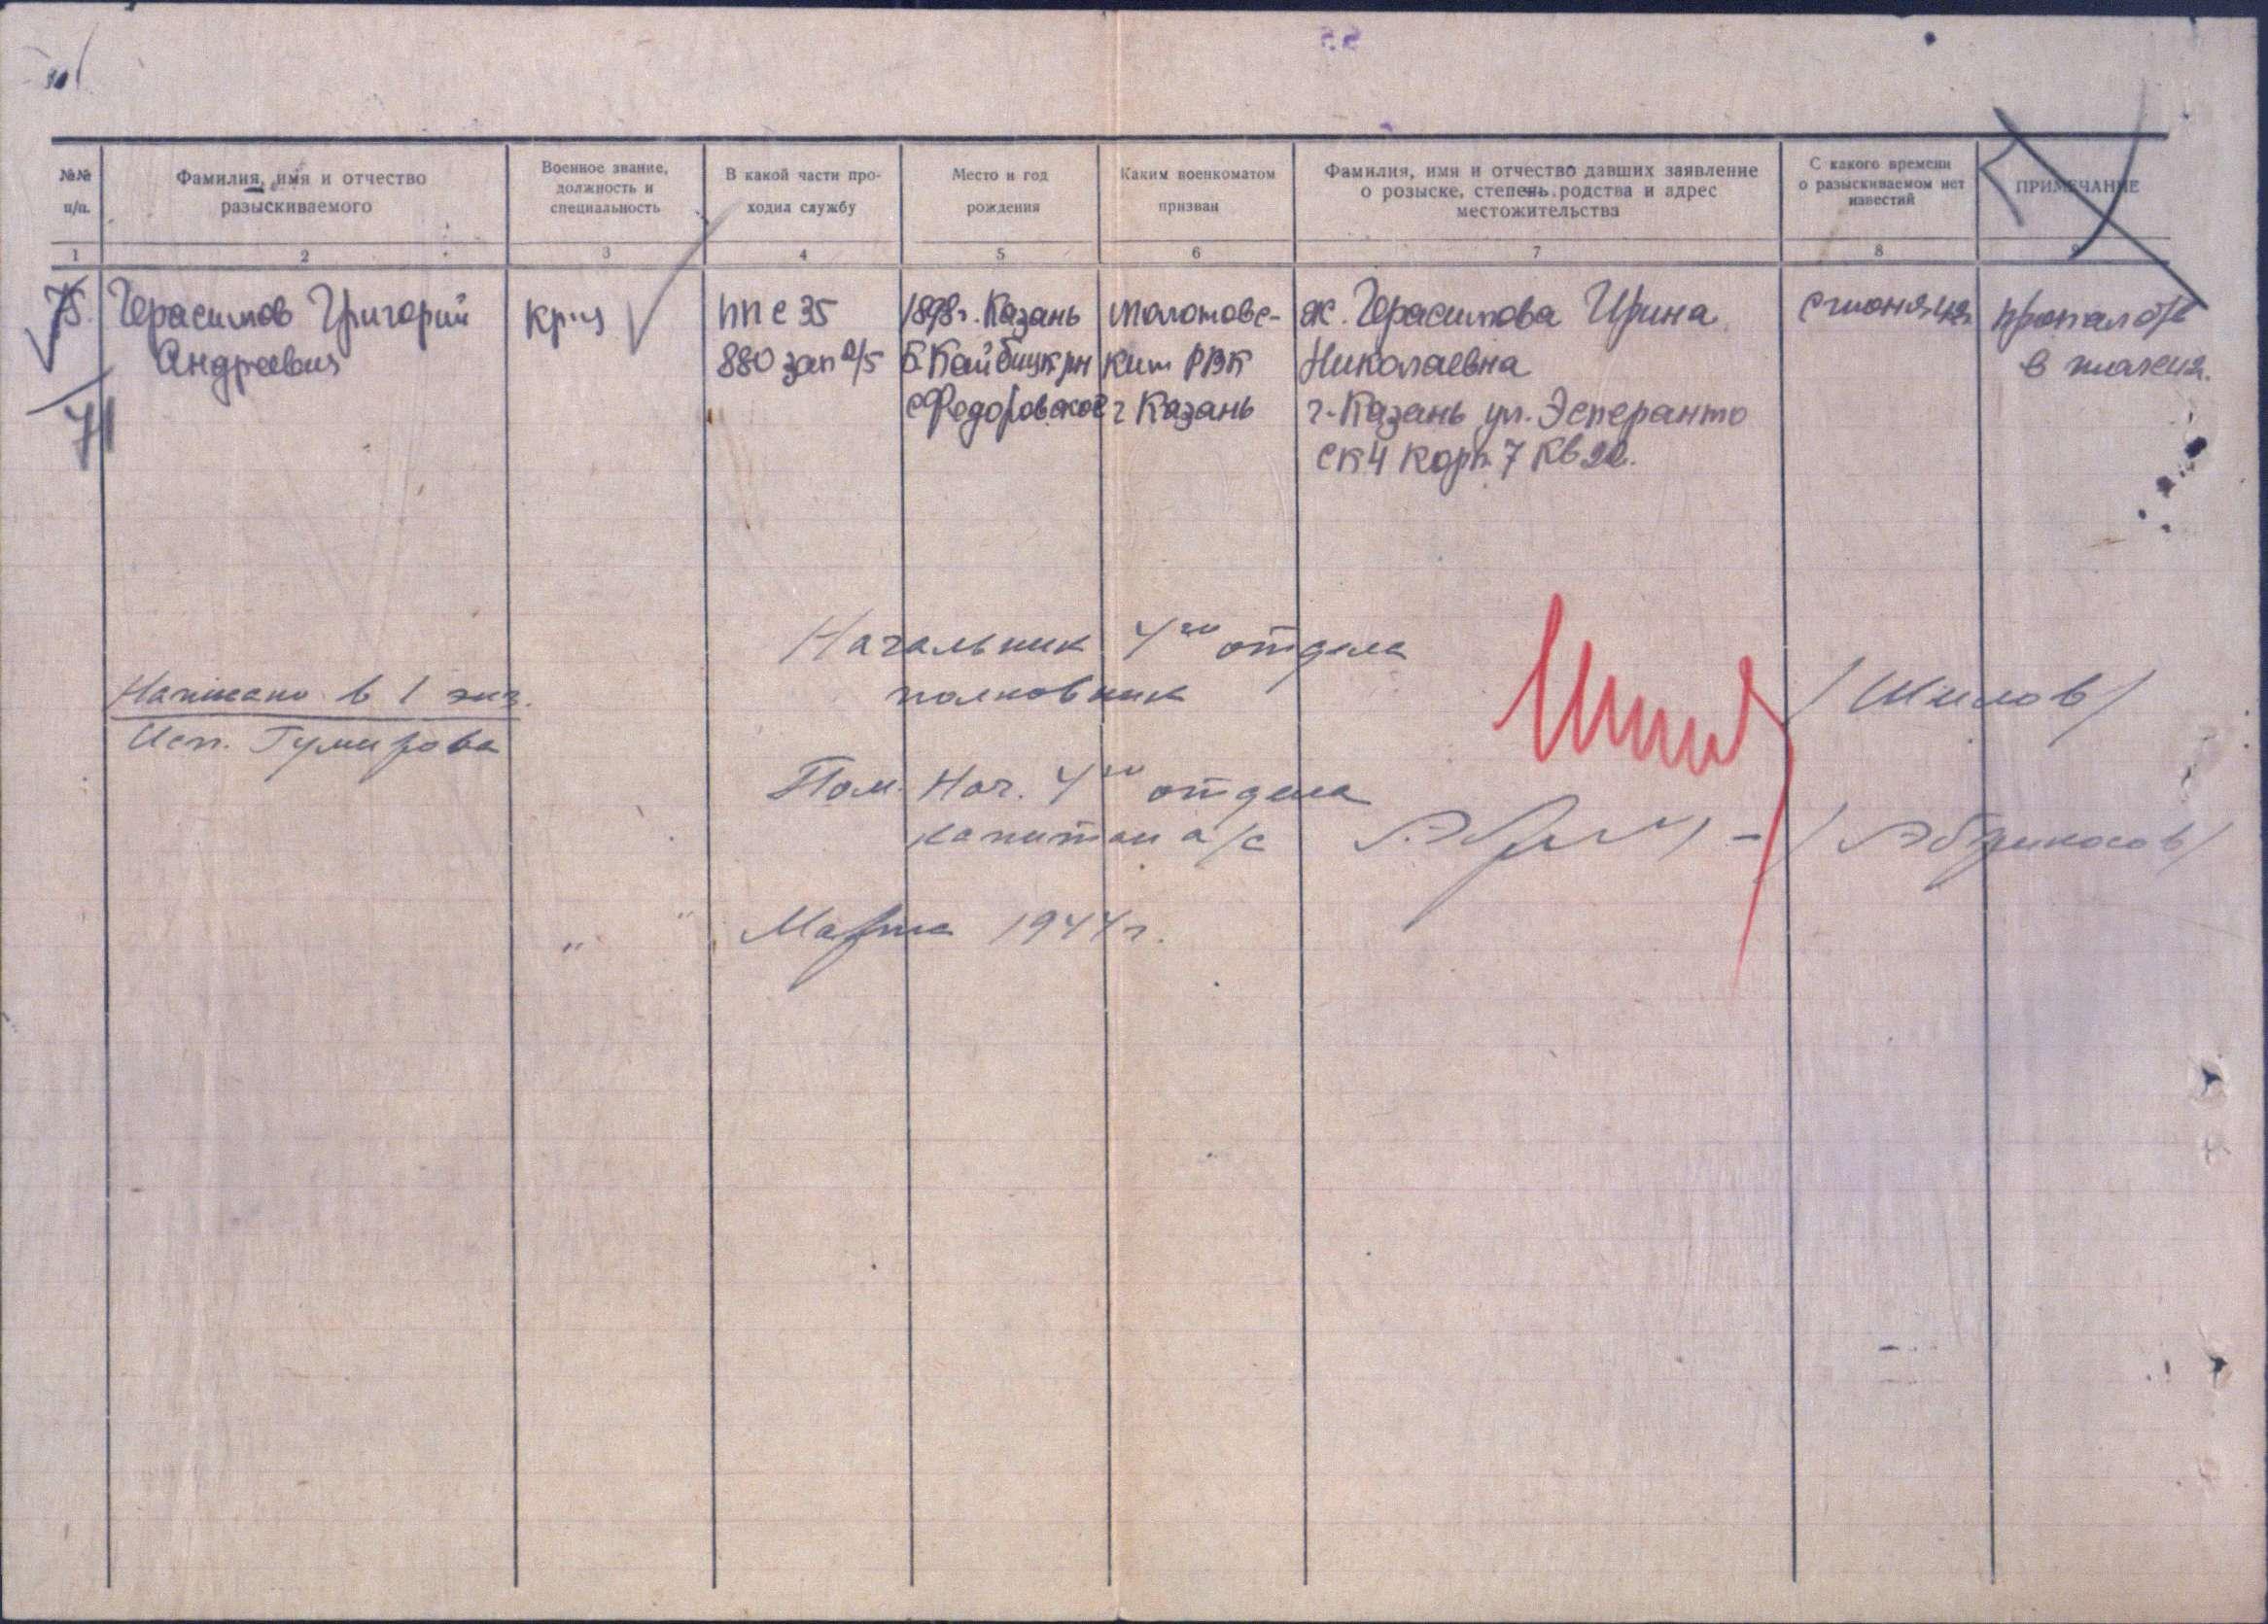 №№ п/п.
Фамилия, имя и отчество разыскиваемого
Военное звание, должность и специальность
В какой части проходил службу
Место и год рождения
Каким военкоматом призван
Фамилия, имя и отчество давших заявление о розыске, степень родства и адрес местожительства
С какого времени о разыскиваемом нет известий
ПРИМЕЧАНИЕ
1 2 3 4 5 6 7 8 9
75. Герасимов Григорий
Андреевич
71
кр-ц
ппс 35
880 зап
1898г. Казань
Б Кайбицк рн
с Федоровское
Молотовс-
ким РВК
г Казань
ж. Герасимова Ирина
Николаевна
г. Казань ул. Эсперанто
ск 4 корп 7 кв
с июня 42г
Начальник 4го отдела
полковник
/Шилов/
Написано в 1 экз.
Исп. Гумирова
Пом. Нач. 4го отдела
капитан а/с
/Абрикосов/
" " Марта 1944 г.